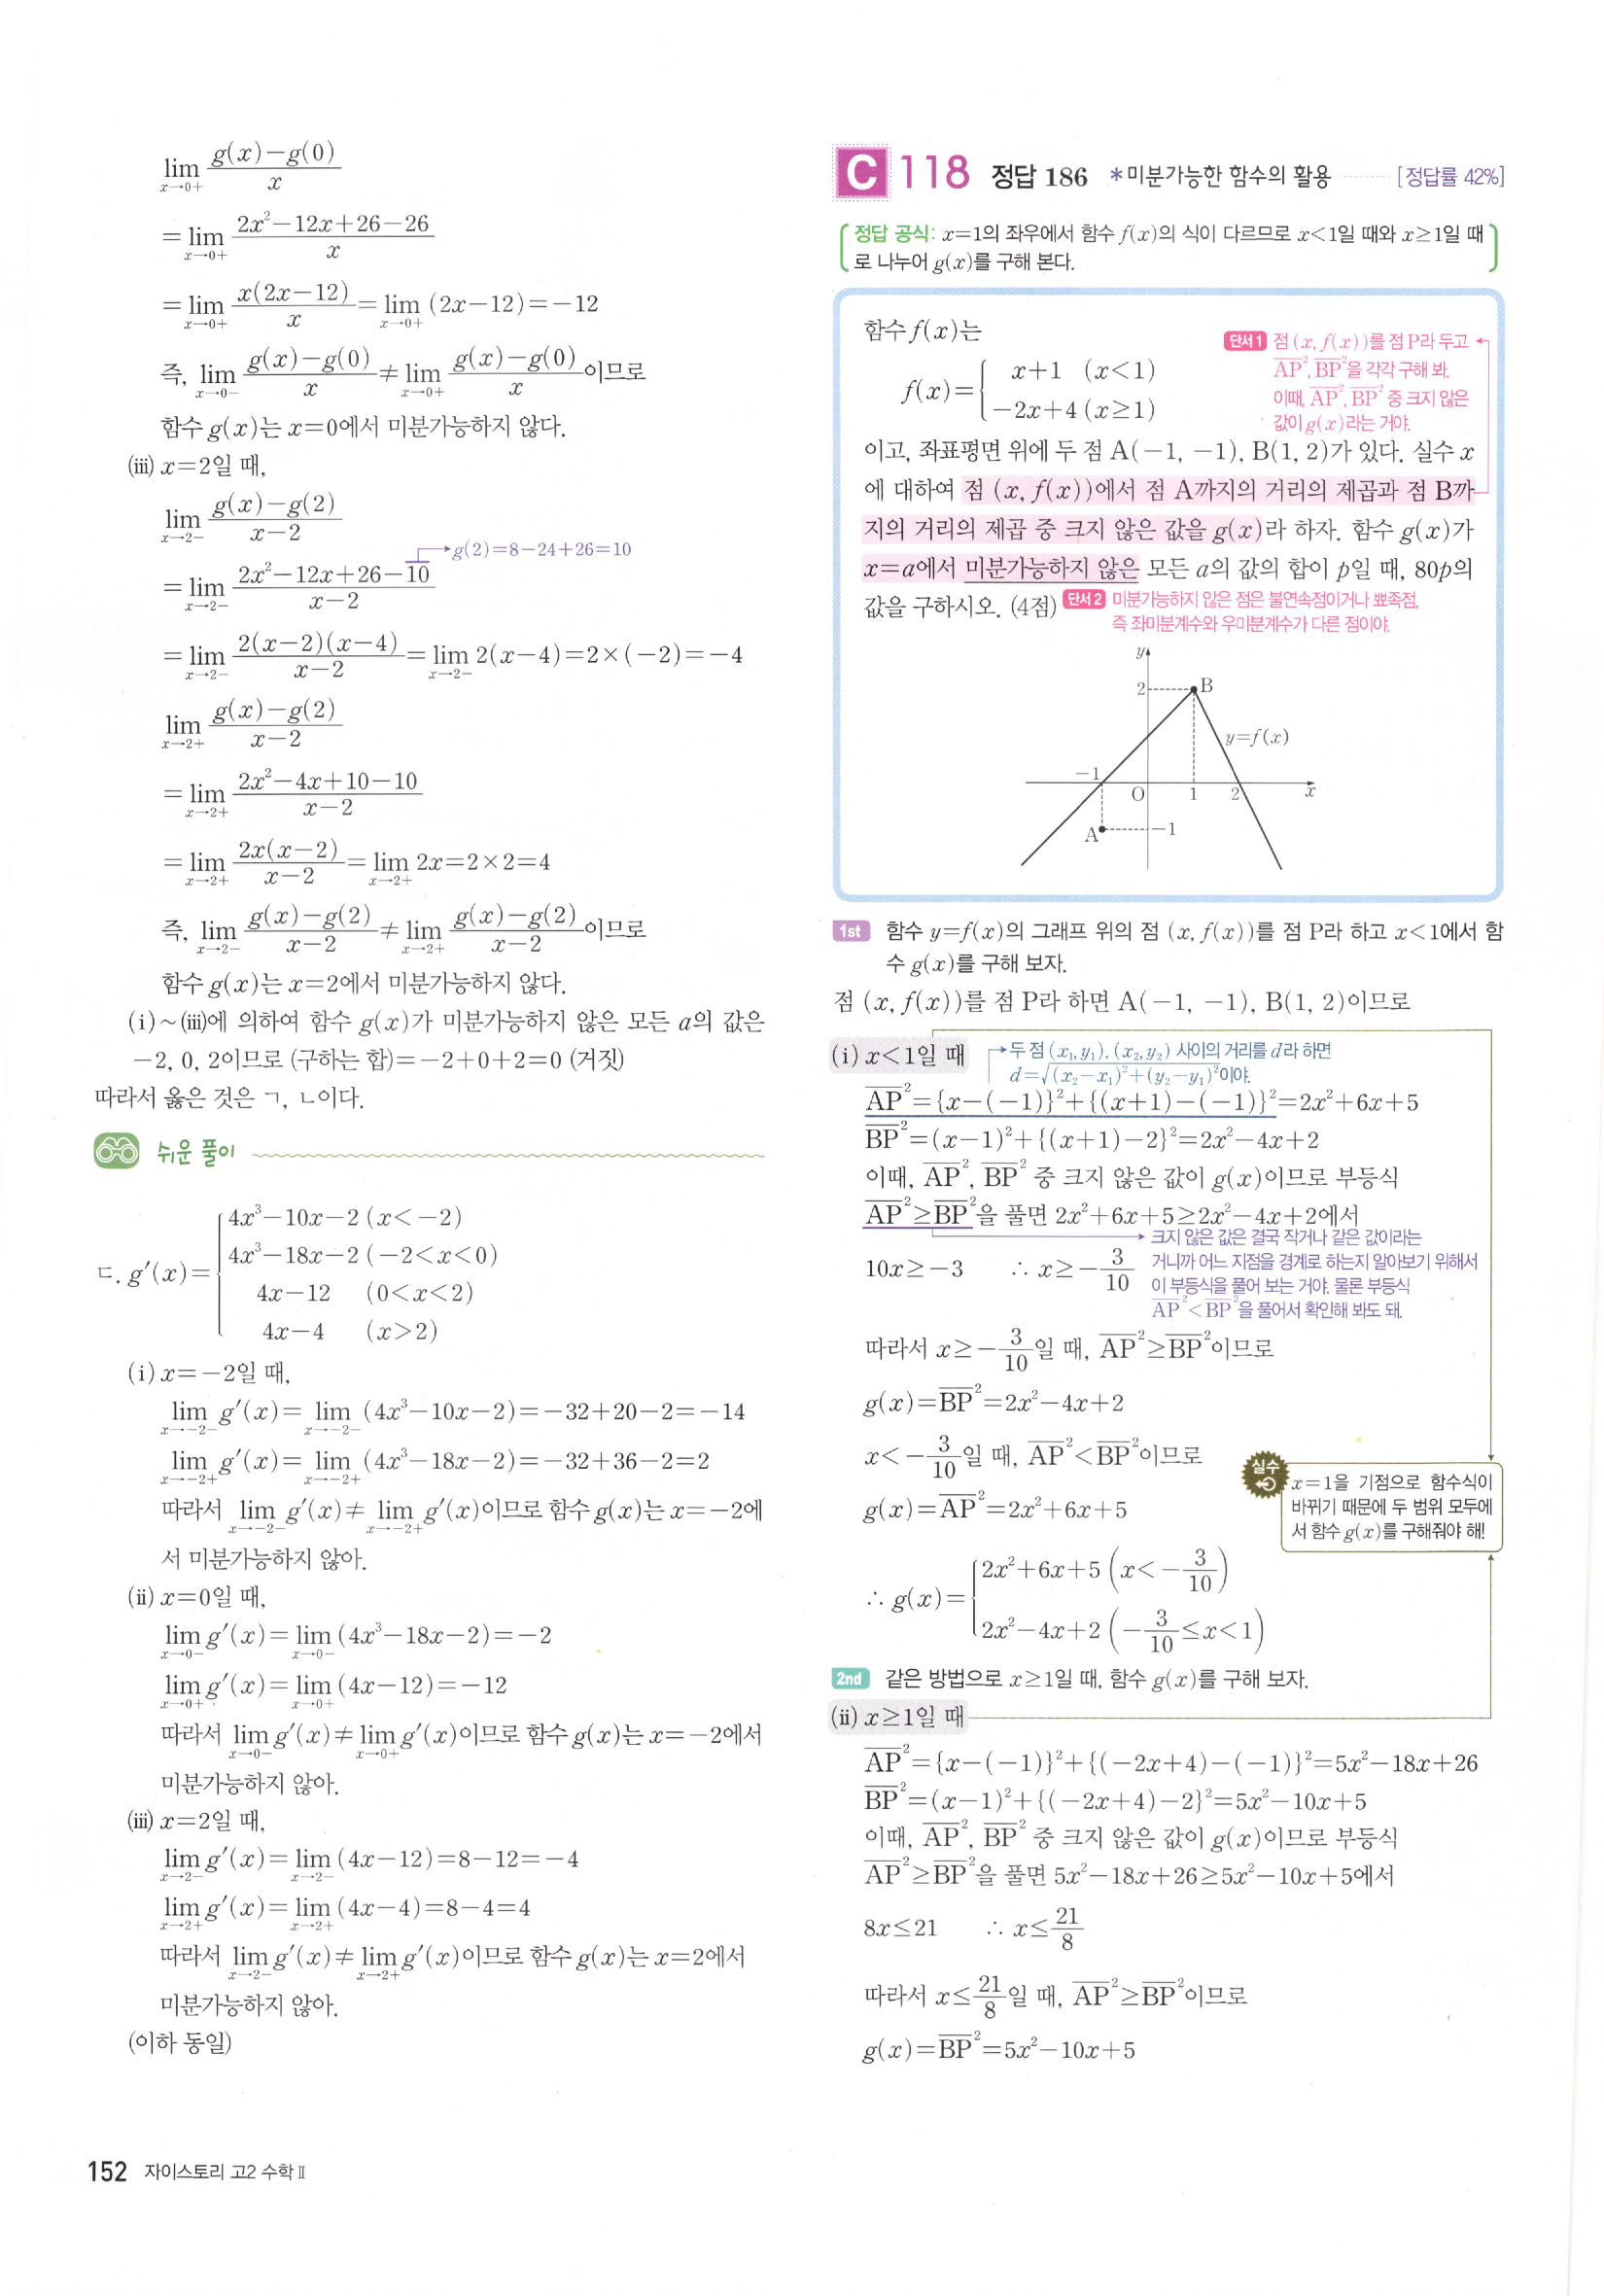 lim_{x→0+} (g(x)−g(0))/x
=lim_{x→0+} (2x²−12x+26−26)/x
=lim_{x→0+} x(2x−12)/x=lim_{x→0+} (2x−12)=−12
즉, lim_{x→0−} (g(x)−g(0))/x≠lim_{x→0+} (g(x)−g(0))/x이므로
함수 g(x)는 x=0에서 미분가능하지 않다.
(ⅲ) x=2일 때,
lim_{x→2−} (g(x)−g(2))/(x−2)
→g(2)=8−24+26=10
=lim_{x→2−} (2x²−12x+26−10)/(x−2)
=lim_{x→2−} 2(x−2)(x−4)/(x−2)=lim_{x→2−} 2(x−4)=2×(−2)=−4
lim_{x→2+} (g(x)−g(2))/(x−2)
=lim_{x→2+} (2x²−4x+10−10)/(x−2)
=lim_{x→2+} 2x(x−2)/(x−2)=lim_{x→2+} 2x=2×2=4
즉, lim_{x→2−} (g(x)−g(2))/(x−2)≠lim_{x→2+} (g(x)−g(2))/(x−2)이므로
함수 g(x)는 x=2에서 미분가능하지 않다.
(ⅰ)~(ⅲ)에 의하여 함수 g(x)가 미분가능하지 않은 모든 a의 값은
−2, 0, 2이므로 (구하는 합)=−2+0+2=0 (거짓)
따라서 옳은 것은 ㄱ, ㄴ이다.
쉬운 풀이
ㄷ. g′(x)={
4x³−10x−2 (x<−2)
4x³−18x−2 (−2<x<0)
4x−12 (0<x<2)
4x−4 (x>2)
(ⅰ) x=−2일 때,
lim_{x→−2−} g′(x)=lim_{x→−2−} (4x³−10x−2)=−32+20−2=−14
lim_{x→−2+} g′(x)=lim_{x→−2+} (4x³−18x−2)=−32+36−2=2
따라서 lim_{x→−2−} g′(x)≠lim_{x→−2+} g′(x)이므로 함수 g(x)는 x=−2에
서 미분가능하지 않아.
(ⅱ) x=0일 때,
lim_{x→0−} g′(x)=lim_{x→0−} (4x³−18x−2)=−2
lim_{x→0+} g′(x)=lim_{x→0+} (4x−12)=−12
따라서 lim_{x→0−} g′(x)≠lim_{x→0+} g′(x)이므로 함수 g(x)는 x=−2에서
미분가능하지 않아.
(ⅲ) x=2일 때,
lim_{x→2−} g′(x)=lim_{x→2−} (4x−12)=8−12=−4
lim_{x→2+} g′(x)=lim_{x→2+} (4x−4)=8−4=4
따라서 lim_{x→2−} g′(x)≠lim_{x→2+} g′(x)이므로 함수 g(x)는 x=2에서
미분가능하지 않아.
(이하 동일)
152 자이스토리 고2 수학Ⅱ
C 118 정답 186 *미분가능한 함수의 활용 [정답률 42%]
정답 공식: x=1의 좌우에서 함수 f(x)의 식이 다르므로 x<1일 때와 x≥1일 때
로 나누어 g(x)를 구해 본다.
함수 f(x)는
f(x)={
x+1 (x<1)
−2x+4 (x≥1)
단서1 점 (x, f(x))를 점 P라 두고
A͞P², B͞P²을 각각 구해 봐.
이때, A͞P², B͞P² 중 크지 않은
값이 g(x)라는 거야.
이고, 좌표평면 위에 두 점 A(−1, −1), B(1, 2)가 있다. 실수 x
에 대하여 점 (x, f(x))에서 점 A까지의 거리의 제곱과 점 B까
지의 거리의 제곱 중 크지 않은 값을 g(x)라 하자. 함수 g(x)가
x=a에서 미분가능하지 않은 모든 a의 값의 합이 p일 때, 80p의
값을 구하시오. (4점)
단서2 미분가능하지 않은 점은 불연속점이거나 뾰족점,
즉 좌미분계수와 우미분계수가 다른 점이야.
y
2
B
y=f(x)
−1
O
1
2
x
A
−1
1st 함수 y=f(x)의 그래프 위의 점 (x, f(x))를 점 P라 하고 x<1에서 함
수 g(x)를 구해 보자.
점 (x, f(x))를 점 P라 하면 A(−1, −1), B(1, 2)이므로
(ⅰ) x<1일 때
→두 점 (x₁, y₁), (x₂, y₂) 사이의 거리를 d라 하면
d=√((x₂−x₁)²+(y₂−y₁)²)이야.
A͞P²={x−(−1)}²+{(x+1)−(−1)}²=2x²+6x+5
B͞P²=(x−1)²+{(x+1)−2}²=2x²−4x+2
이때, A͞P², B͞P² 중 크지 않은 값이 g(x)이므로 부등식
A͞P²≥B͞P²을 풀면 2x²+6x+5≥2x²−4x+2에서
→ 크지 않은 값은 결국 작거나 같은 값이라는
거니까 어느 지점을 경계로 하는지 알아보기 위해서
이 부등식을 풀어 보는 거야. 물론 부등식
A͞P²<B͞P²을 풀어서 확인해 봐도 돼.
10x≥−3 ∴ x≥−3/10
따라서 x≥−3/10일 때, A͞P²≥B͞P²이므로
g(x)=B͞P²=2x²−4x+2
x<−3/10일 때, A͞P²<B͞P²이므로
g(x)=A͞P²=2x²+6x+5
실수
x=1을 기점으로 함수식이
바뀌기 때문에 두 범위 모두에
서 함수 g(x)를 구해줘야 해!
∴ g(x)={
2x²+6x+5 (x<−3/10)
2x²−4x+2 (−3/10≤x<1)
2nd 같은 방법으로 x≥1일 때, 함수 g(x)를 구해 보자.
(ⅱ) x≥1일 때
A͞P²={x−(−1)}²+{(−2x+4)−(−1)}²=5x²−18x+26
B͞P²=(x−1)²+{(−2x+4)−2}²=5x²−10x+5
이때, A͞P², B͞P² 중 크지 않은 값이 g(x)이므로 부등식
A͞P²≥B͞P²을 풀면 5x²−18x+26≥5x²−10x+5에서
8x≤21 ∴ x≤21/8
따라서 x≤21/8일 때, A͞P²≥B͞P²이므로
g(x)=B͞P²=5x²−10x+5